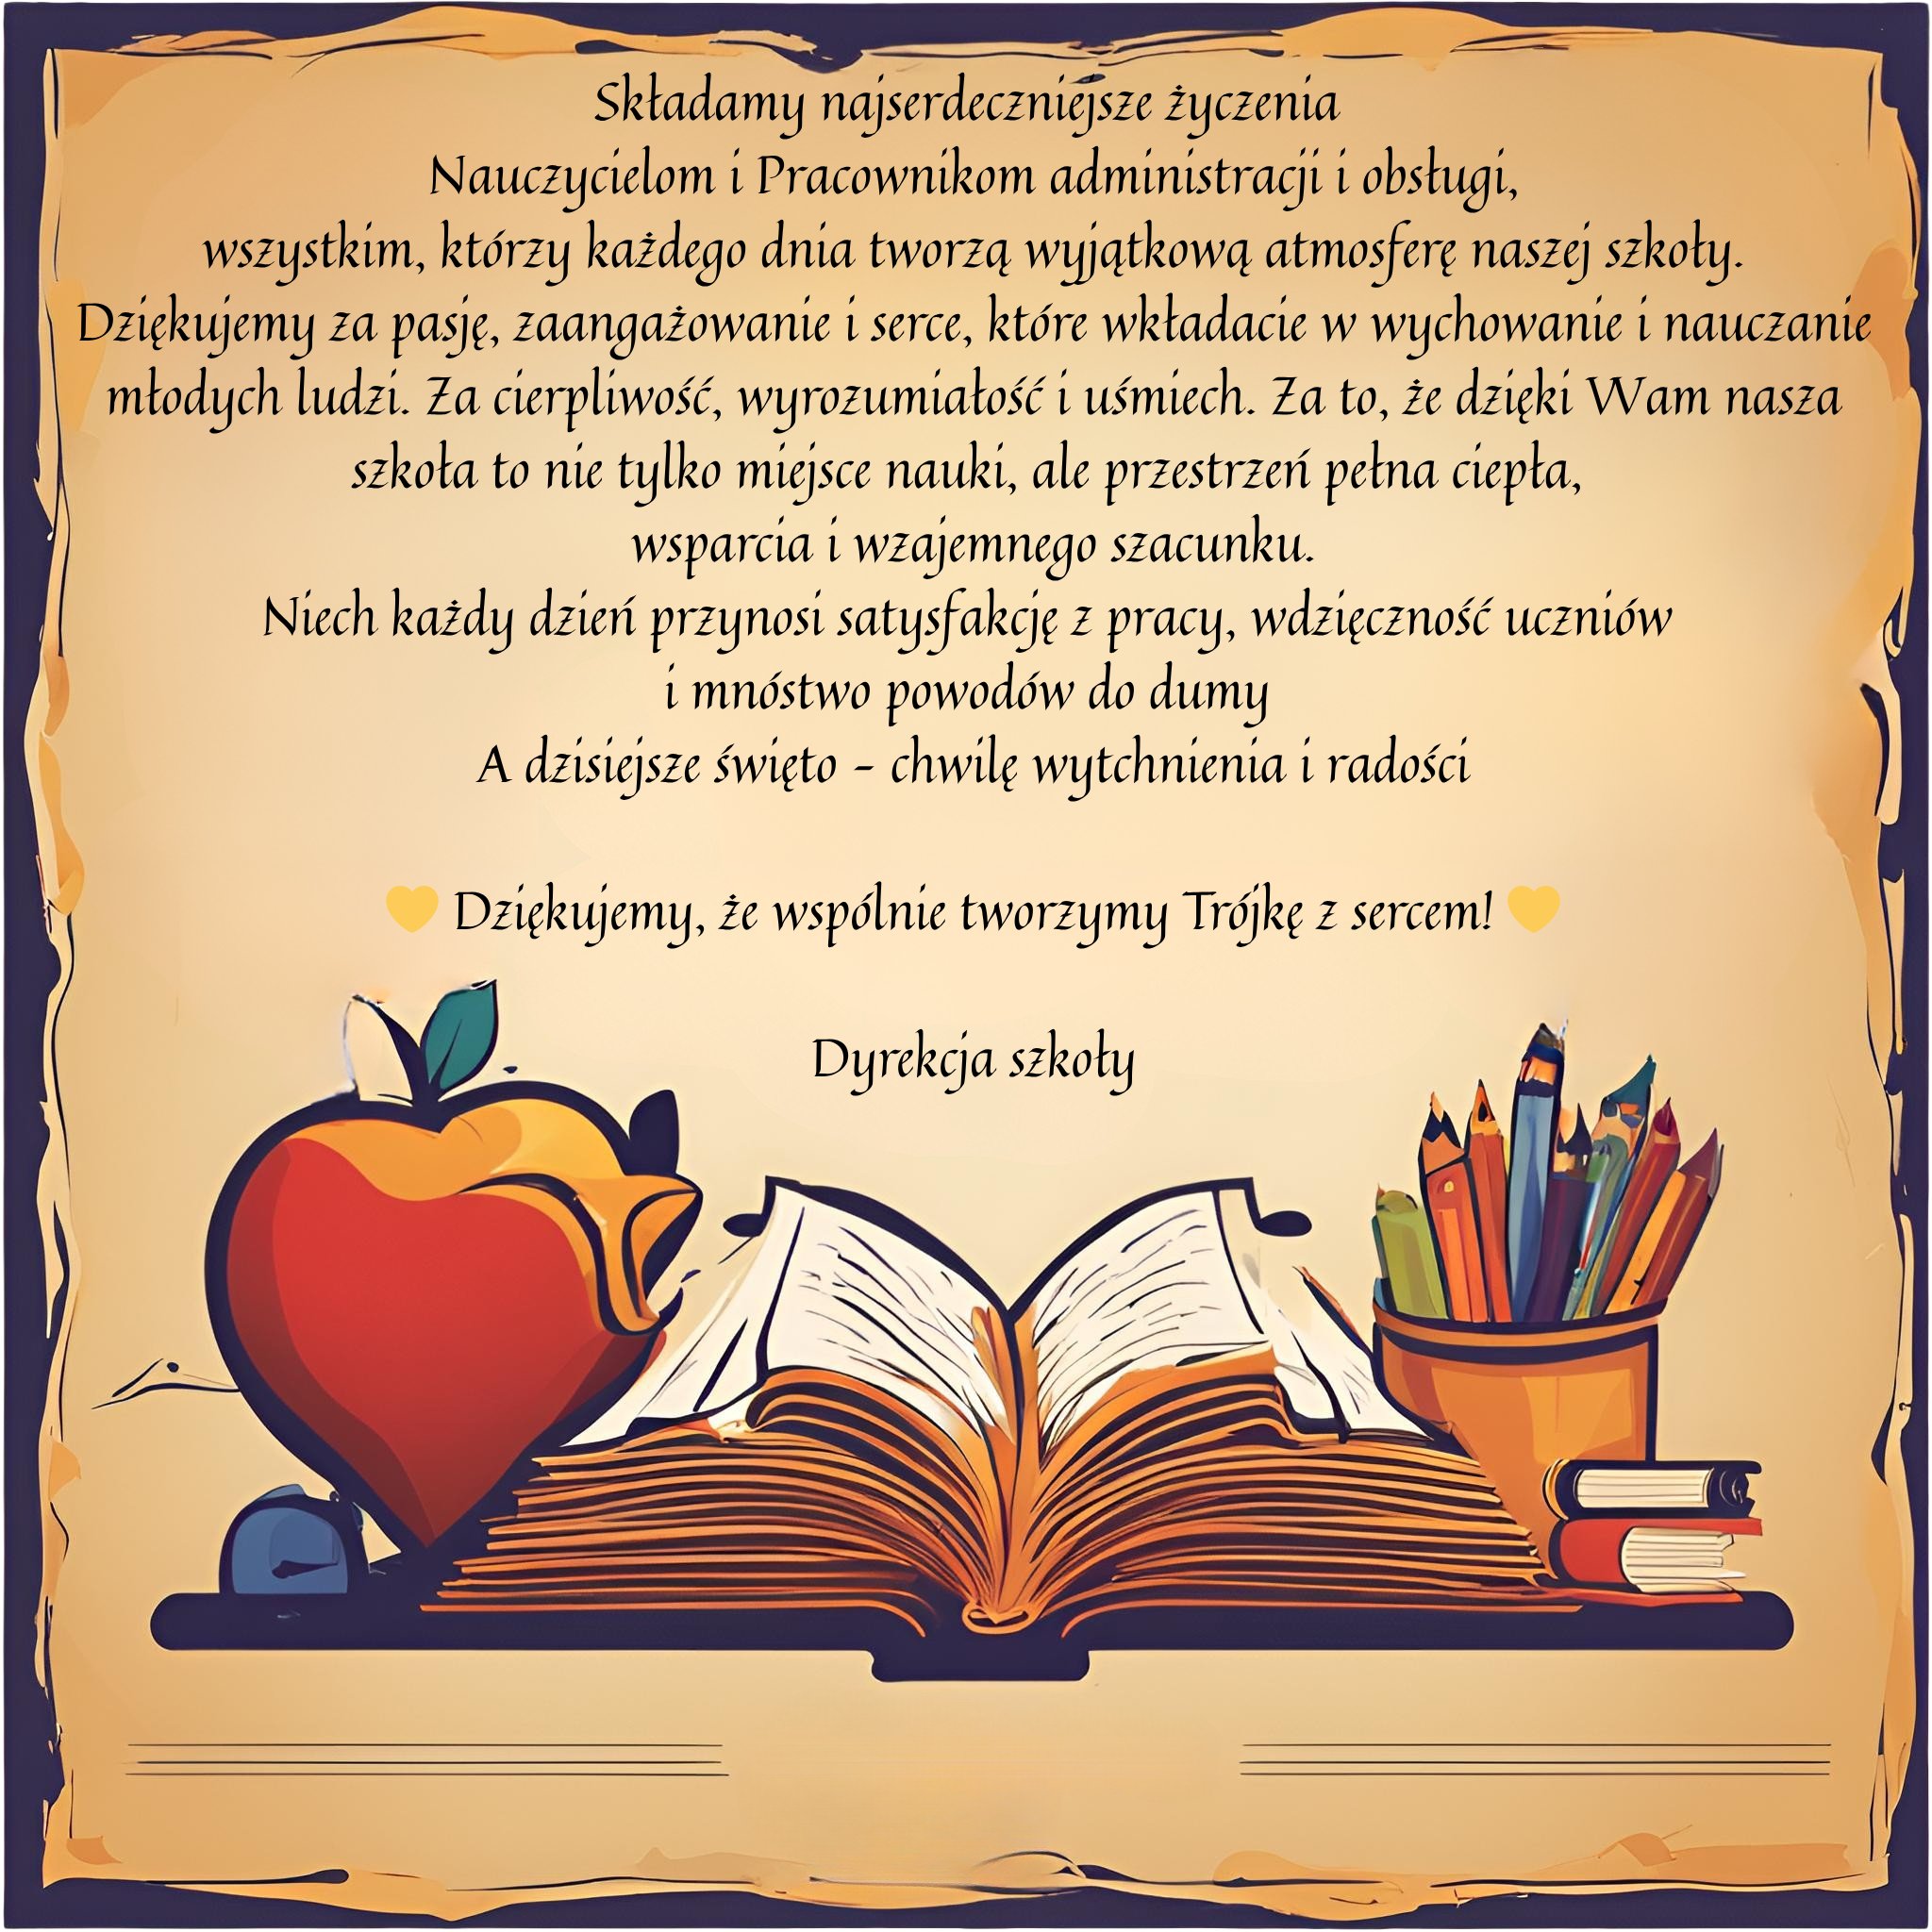 Składamy najserdeczniejsze życzenia
Nauczycielom i Pracownikom administracji i obsługi,
wszystkim, którzy każdego dnia tworzą wyjątkową atmosferę naszej szkoły.
Dziękujemy za pasję, zaangażowanie i serce, które wkładacie w wychowanie i nauczanie
młodych ludzi. Za cierpliwość, wyrozumiałość i uśmiech. Za to, że dzięki Wam nasza
szkoła to nie tylko miejsce nauki, ale przestrzeń pełna ciepła,
wsparcia i wzajemnego szacunku.
Niech każdy dzień przynosi satysfakcję z pracy, wdzięczność uczniów
i mnóstwo powodów do dumy
A dzisiejsze święto – chwilę wytchnienia i radości
💛 Dziękujemy, że wspólnie tworzymy Trójkę z sercem! 💛
Dyrekcja szkoły